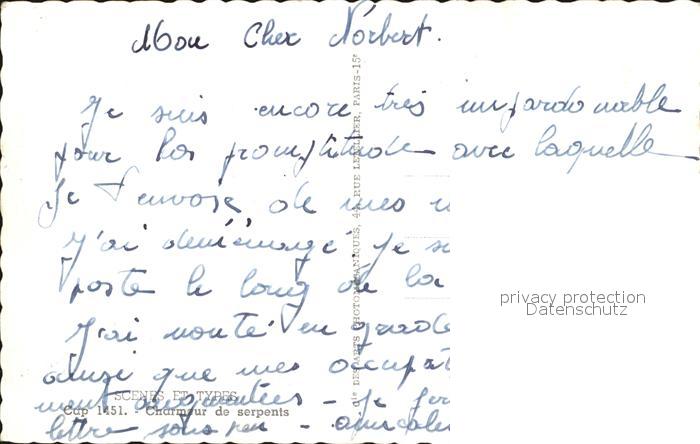 Mon Cher Norbert.
Je suis encore très impardonable
pour la promptitude avec laquelle
Je t'envoie de mes n
J'ai déménagé je su
poste le long de la
J'ai monté en grade
ainsi que mes occupat
ment augmentées - je fer
lettre sous peu - amicale
SCENES ET TYPES
Cap 1451. - Charmeur de serpents
Cie DES ARTS PHOTOMECANIQUES, 44, RUE LETELLIER, PARIS-15e
privacy protection
Datenschutz